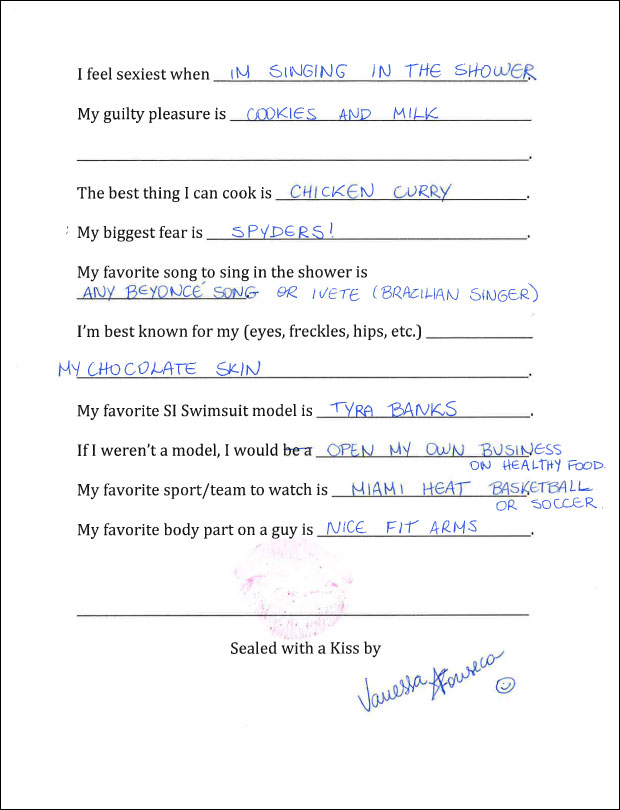 I feel sexiest when IM SINGING IN THE SHOWER.
My guilty pleasure is COOKIES AND MILK
.
The best thing I can cook is CHICKEN CURRY.
My biggest fear is SPYDERS!.
My favorite song to sing in the shower is
ANY BEYONCÉ SONG OR IVETE (BRAZILIAN SINGER)
I'm best known for my (eyes, freckles, hips, etc.)
MY CHOCOLATE SKIN.
My favorite SI Swimsuit model is TYRA BANKS.
If I weren't a model, I would be a OPEN MY OWN BUSINESS
ON HEALTHY FOOD.
My favorite sport/team to watch is MIAMI HEAT BASKETBALL
OR SOCCER.
My favorite body part on a guy is NICE FIT ARMS.
Sealed with a Kiss by
Vanessa Fonseca